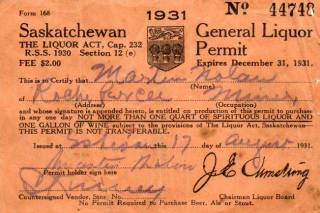 Form 168
1931
No 44748
Saskatchewan
THE LIQUOR ACT, Cap. 232
R.S.S. 1930 Section 12 (e)
FEE $2.00
General Liquor
Permit
Expires December 31, 1931.
This is to Certify that Martin Nolan
(Name)
of
(Address) (Occupation)
and whose signature is appended hereto, is entitled on production of this permit to purchase
in any one day NOT MORE THAN ONE QUART OF SPIRITUOUS LIQUOR AND
ONE GALLON OF WINE subject to the provisions of The Liquor Act, Saskatchewan—
THIS PERMIT IS NOT TRANSFERABLE.
Issued at this 17 day of August 1931.
Permit holder sign here
J.E. Armstrong
Countersigned Vendor, Store No. Chairman Liquor Board
No Permit Required to Purchase Beer, Ale or Stout.